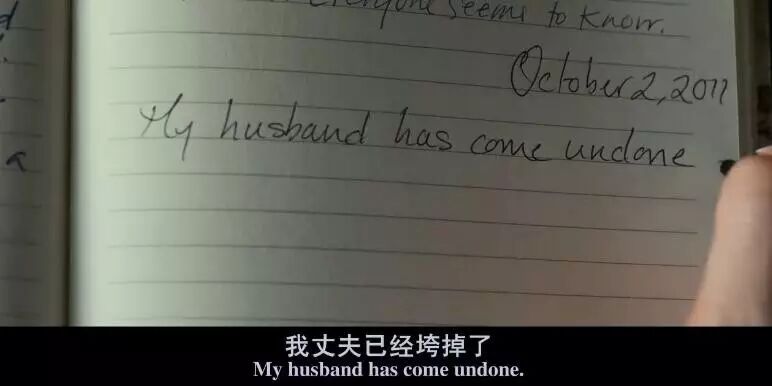 Everyone seems to know.
October 2, 2011
My husband has come undone
我丈夫已经垮掉了
My husband has come undone.